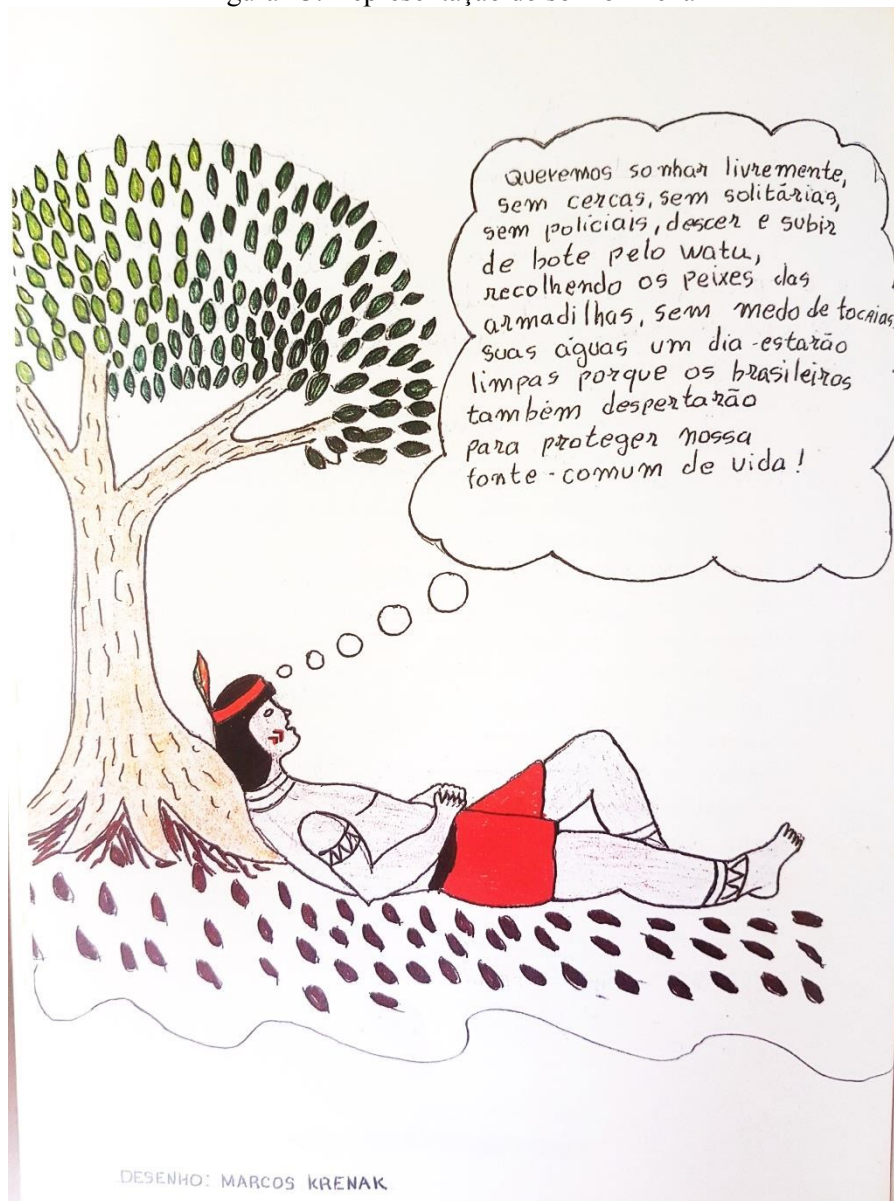 Queremos sonhar livremente,
sem cercas, sem solitárias,
sem policiais, descer e subir
de bote pelo watu,
recolhendo os peixes das
armadilhas, sem medo de tocaias,
suas águas um dia estarão
limpas porque os brasileiros
também despertarão
para proteger nossa
fonte-comum de vida!
DESENHO: MARCOS KRENAK